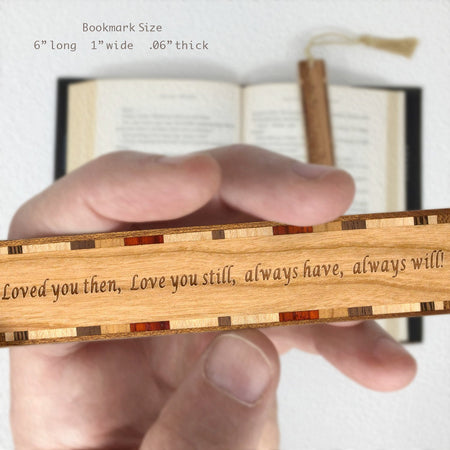 Bookmark Size
6” long 1” wide .06” thick
Loved you then, Love you still, always have, always will!